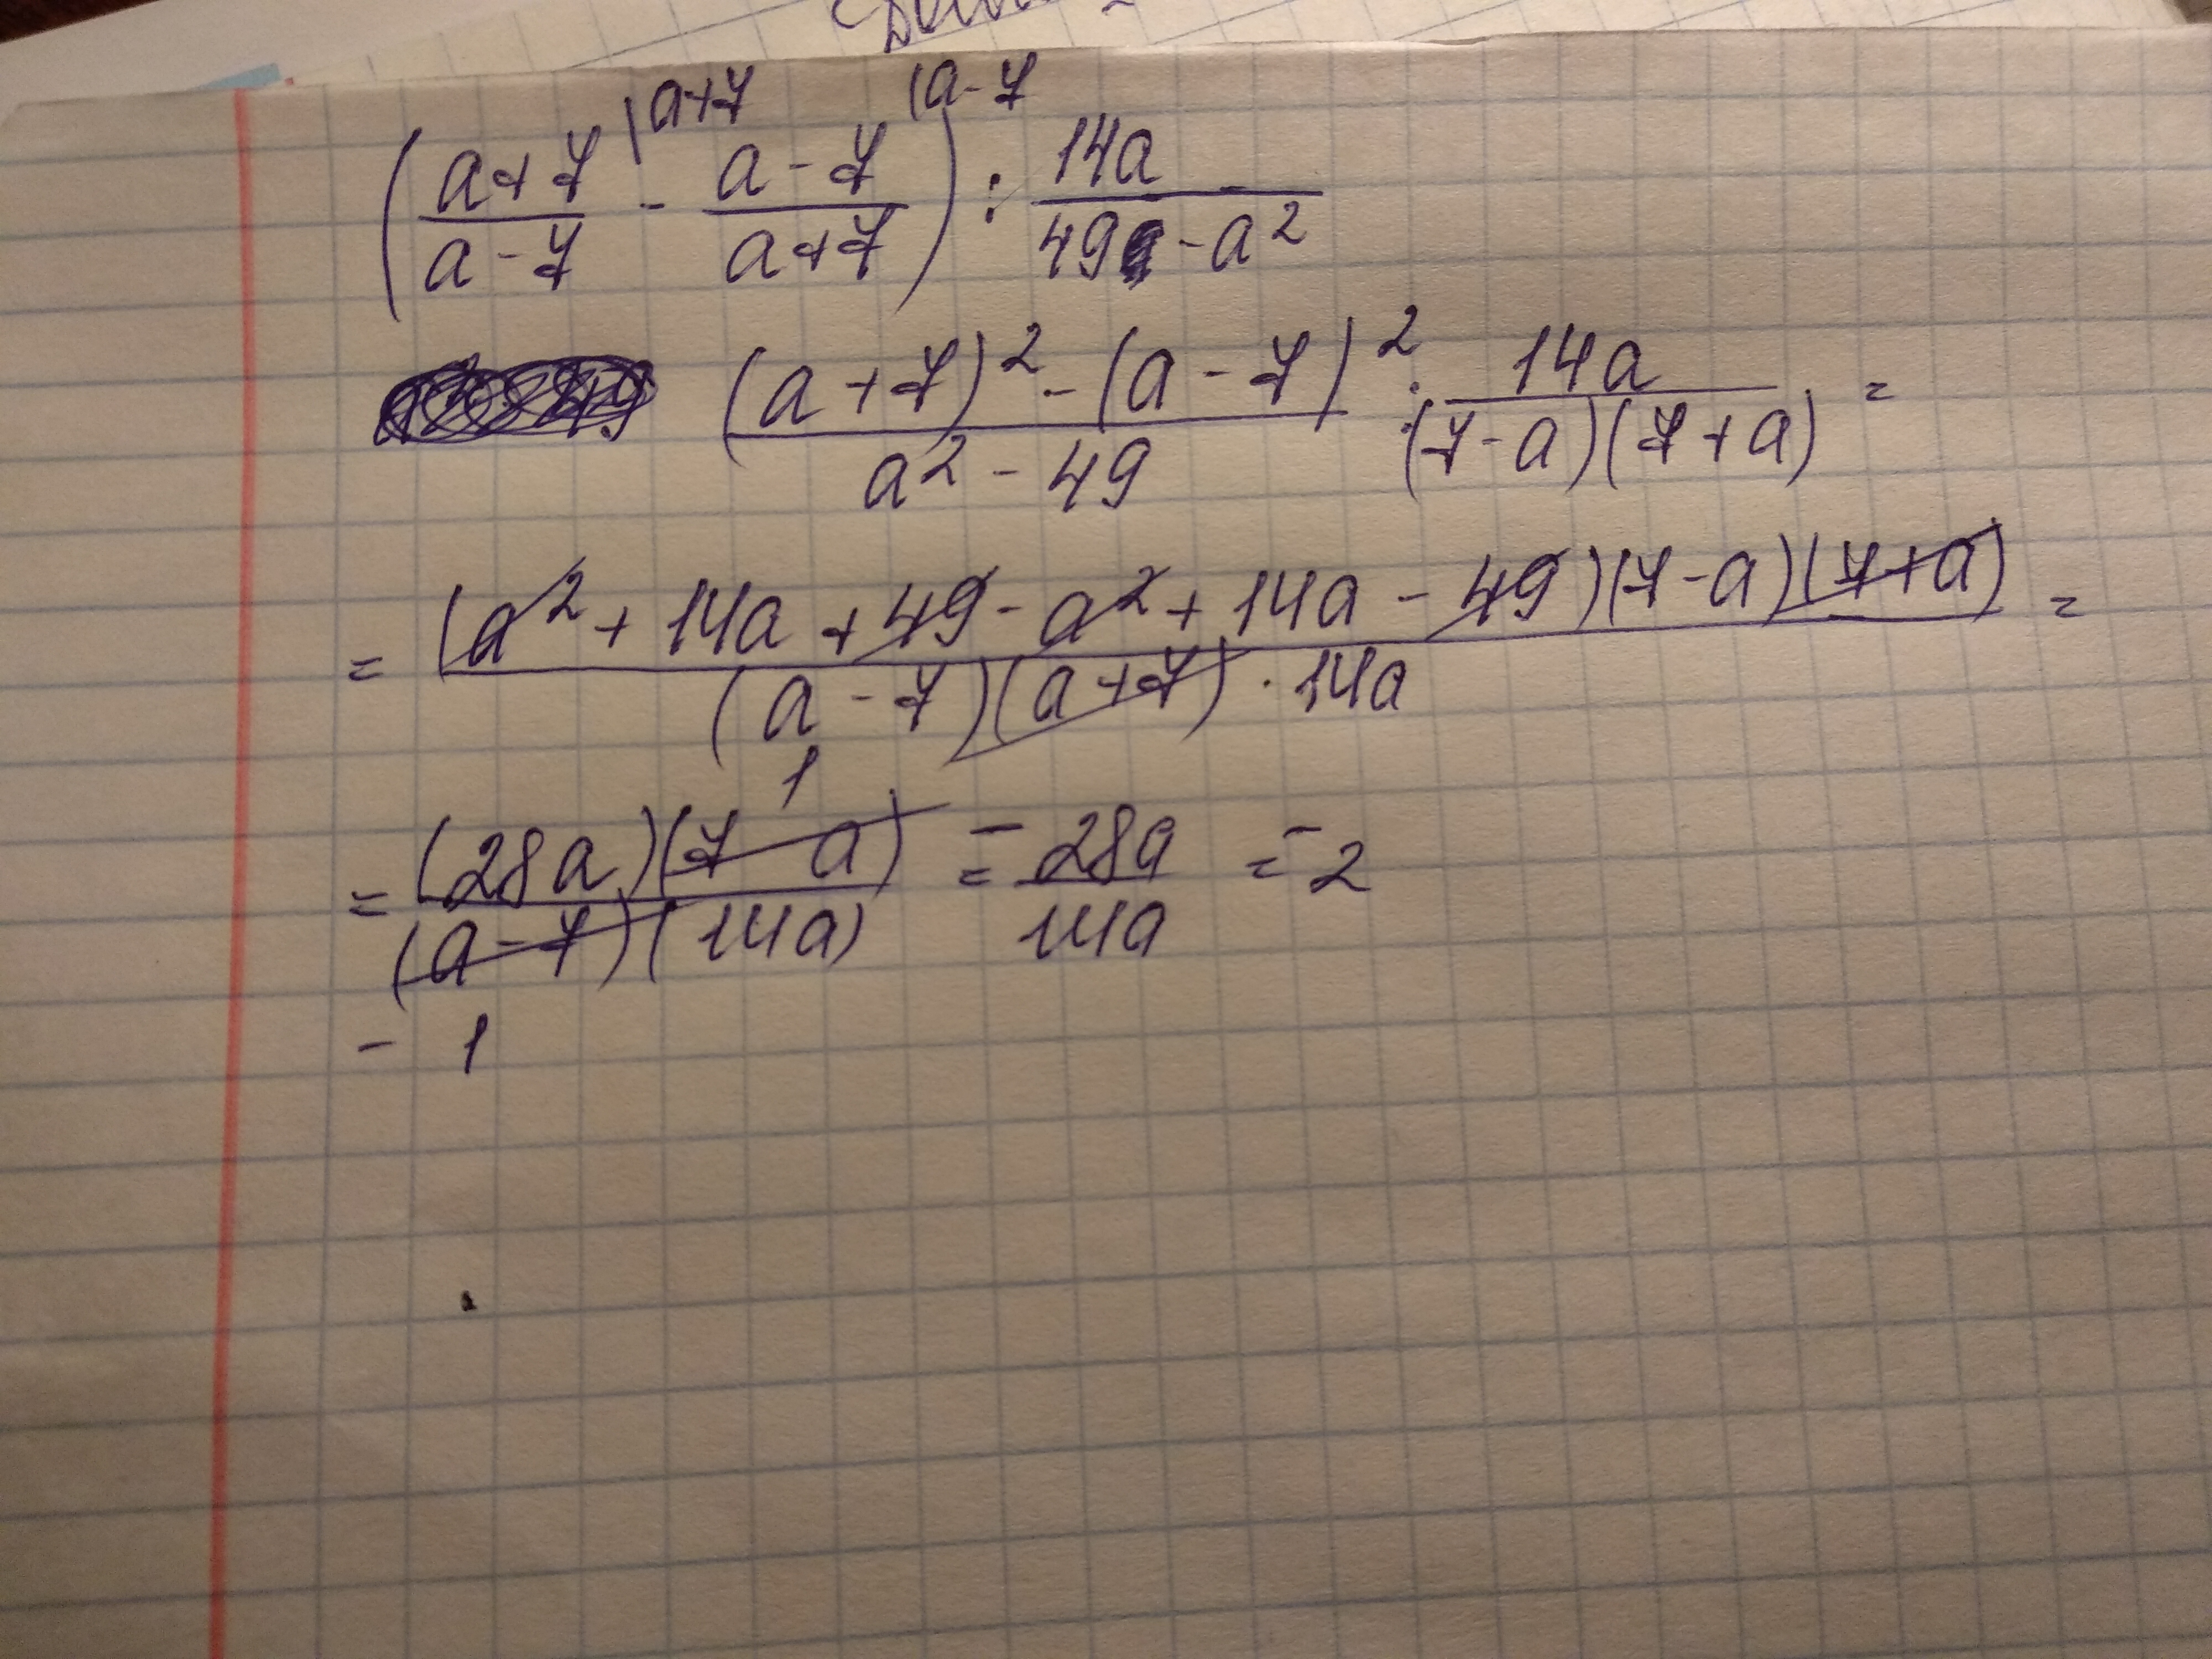 |a+7 |a-7
(a+7/a-7 - a-7/a+7) : 14a/49-a²
(a+7)²-(a-7)²/a²-49 : 14a/(7-a)(7+a) =
= (a²+14a+49-a²+14a-49)(7-a)(7+a)/(a-7)(a+7)·14a =
1
= (28a)(7-a)/(a-7)(14a) = -28a/14a = -2
-1